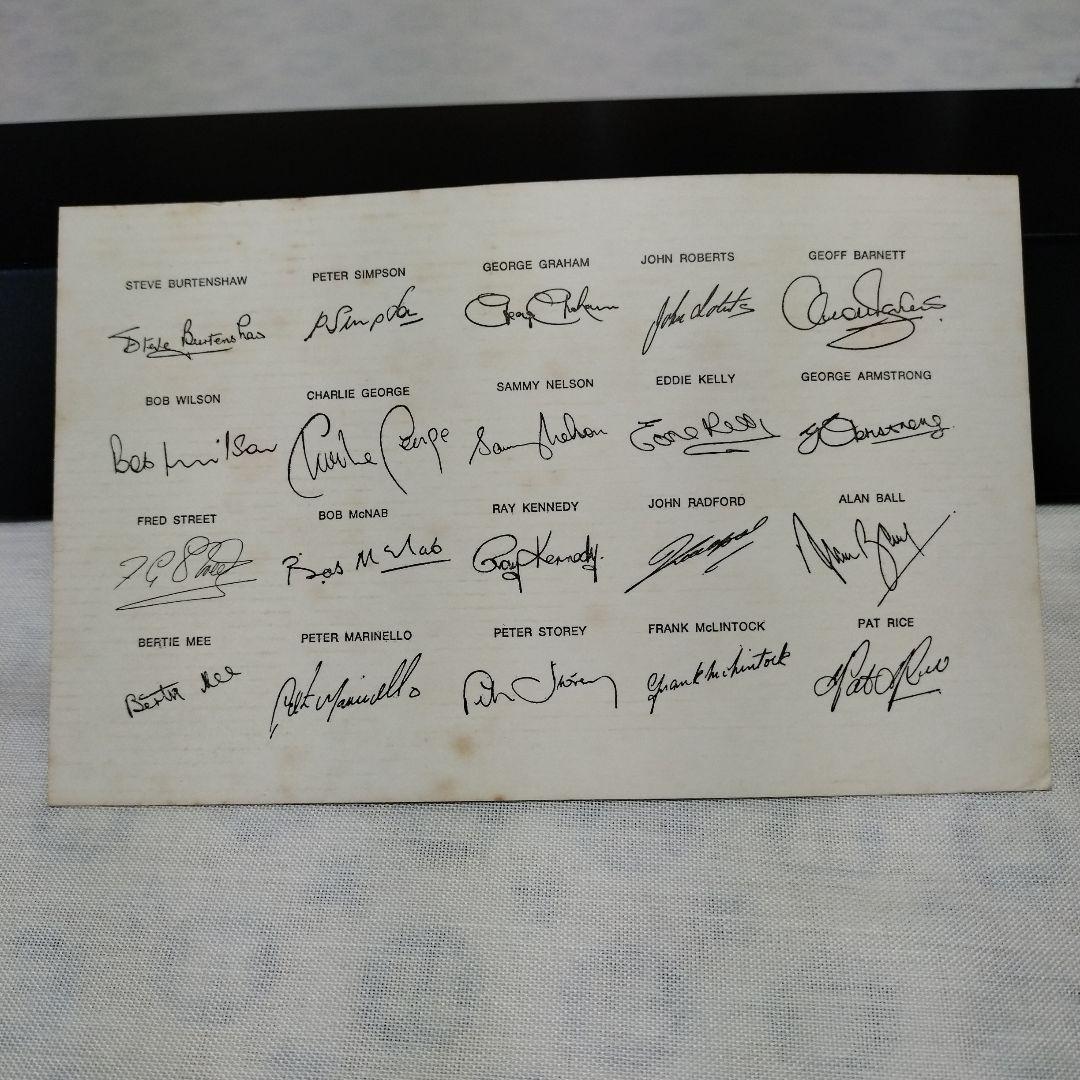 STEVE BURTENSHAW PETER SIMPSON GEORGE GRAHAM JOHN ROBERTS GEOFF BARNETT
Steve Burtenshaw P Simpson George Graham John Roberts
BOB WILSON CHARLIE GEORGE SAMMY NELSON EDDIE KELLY GEORGE ARMSTRONG
Bob Wilson Charlie George Sammy Nelson Eddie Kelly G Armstrong
FRED STREET BOB McNAB RAY KENNEDY JOHN RADFORD ALAN BALL
F G Street Bob McNab Ray Kennedy Alan Ball
BERTIE MEE PETER MARINELLO PETER STOREY FRANK McLINTOCK PAT RICE
Bertie Mee Peter Marinello Peter Storey Frank McLintock Pat Rice